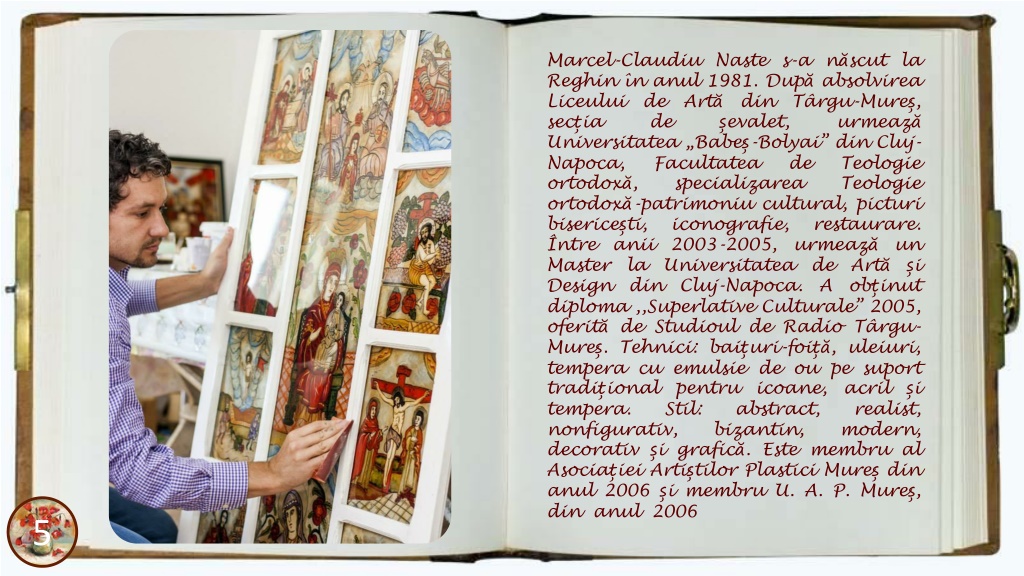 Marcel-Claudiu Naste s-a născut la
Reghin în anul 1981. După absolvirea
Liceului de Artă din Târgu-Mureș,
secția de șevalet, urmează
Universitatea „Babeș-Bolyai” din Cluj-
Napoca, Facultatea de Teologie
ortodoxă, specializarea Teologie
ortodoxă-patrimoniu cultural, picturi
bisericești, iconografie, restaurare.
Între anii 2003-2005, urmează un
Master la Universitatea de Artă și
Design din Cluj-Napoca. A obținut
diploma ,,Superlative Culturale” 2005,
oferită de Studioul de Radio Târgu-
Mureș. Tehnici: baițuri-foiță, uleiuri,
tempera cu emulsie de ou pe suport
tradițional pentru icoane, acril și
tempera. Stil: abstract, realist,
nonfigurativ, bizantin, modern,
decorativ și grafică. Este membru al
Asociației Artiștilor Plastici Mureș din
anul 2006 și membru U. A. P. Mureș,
din anul 2006
5